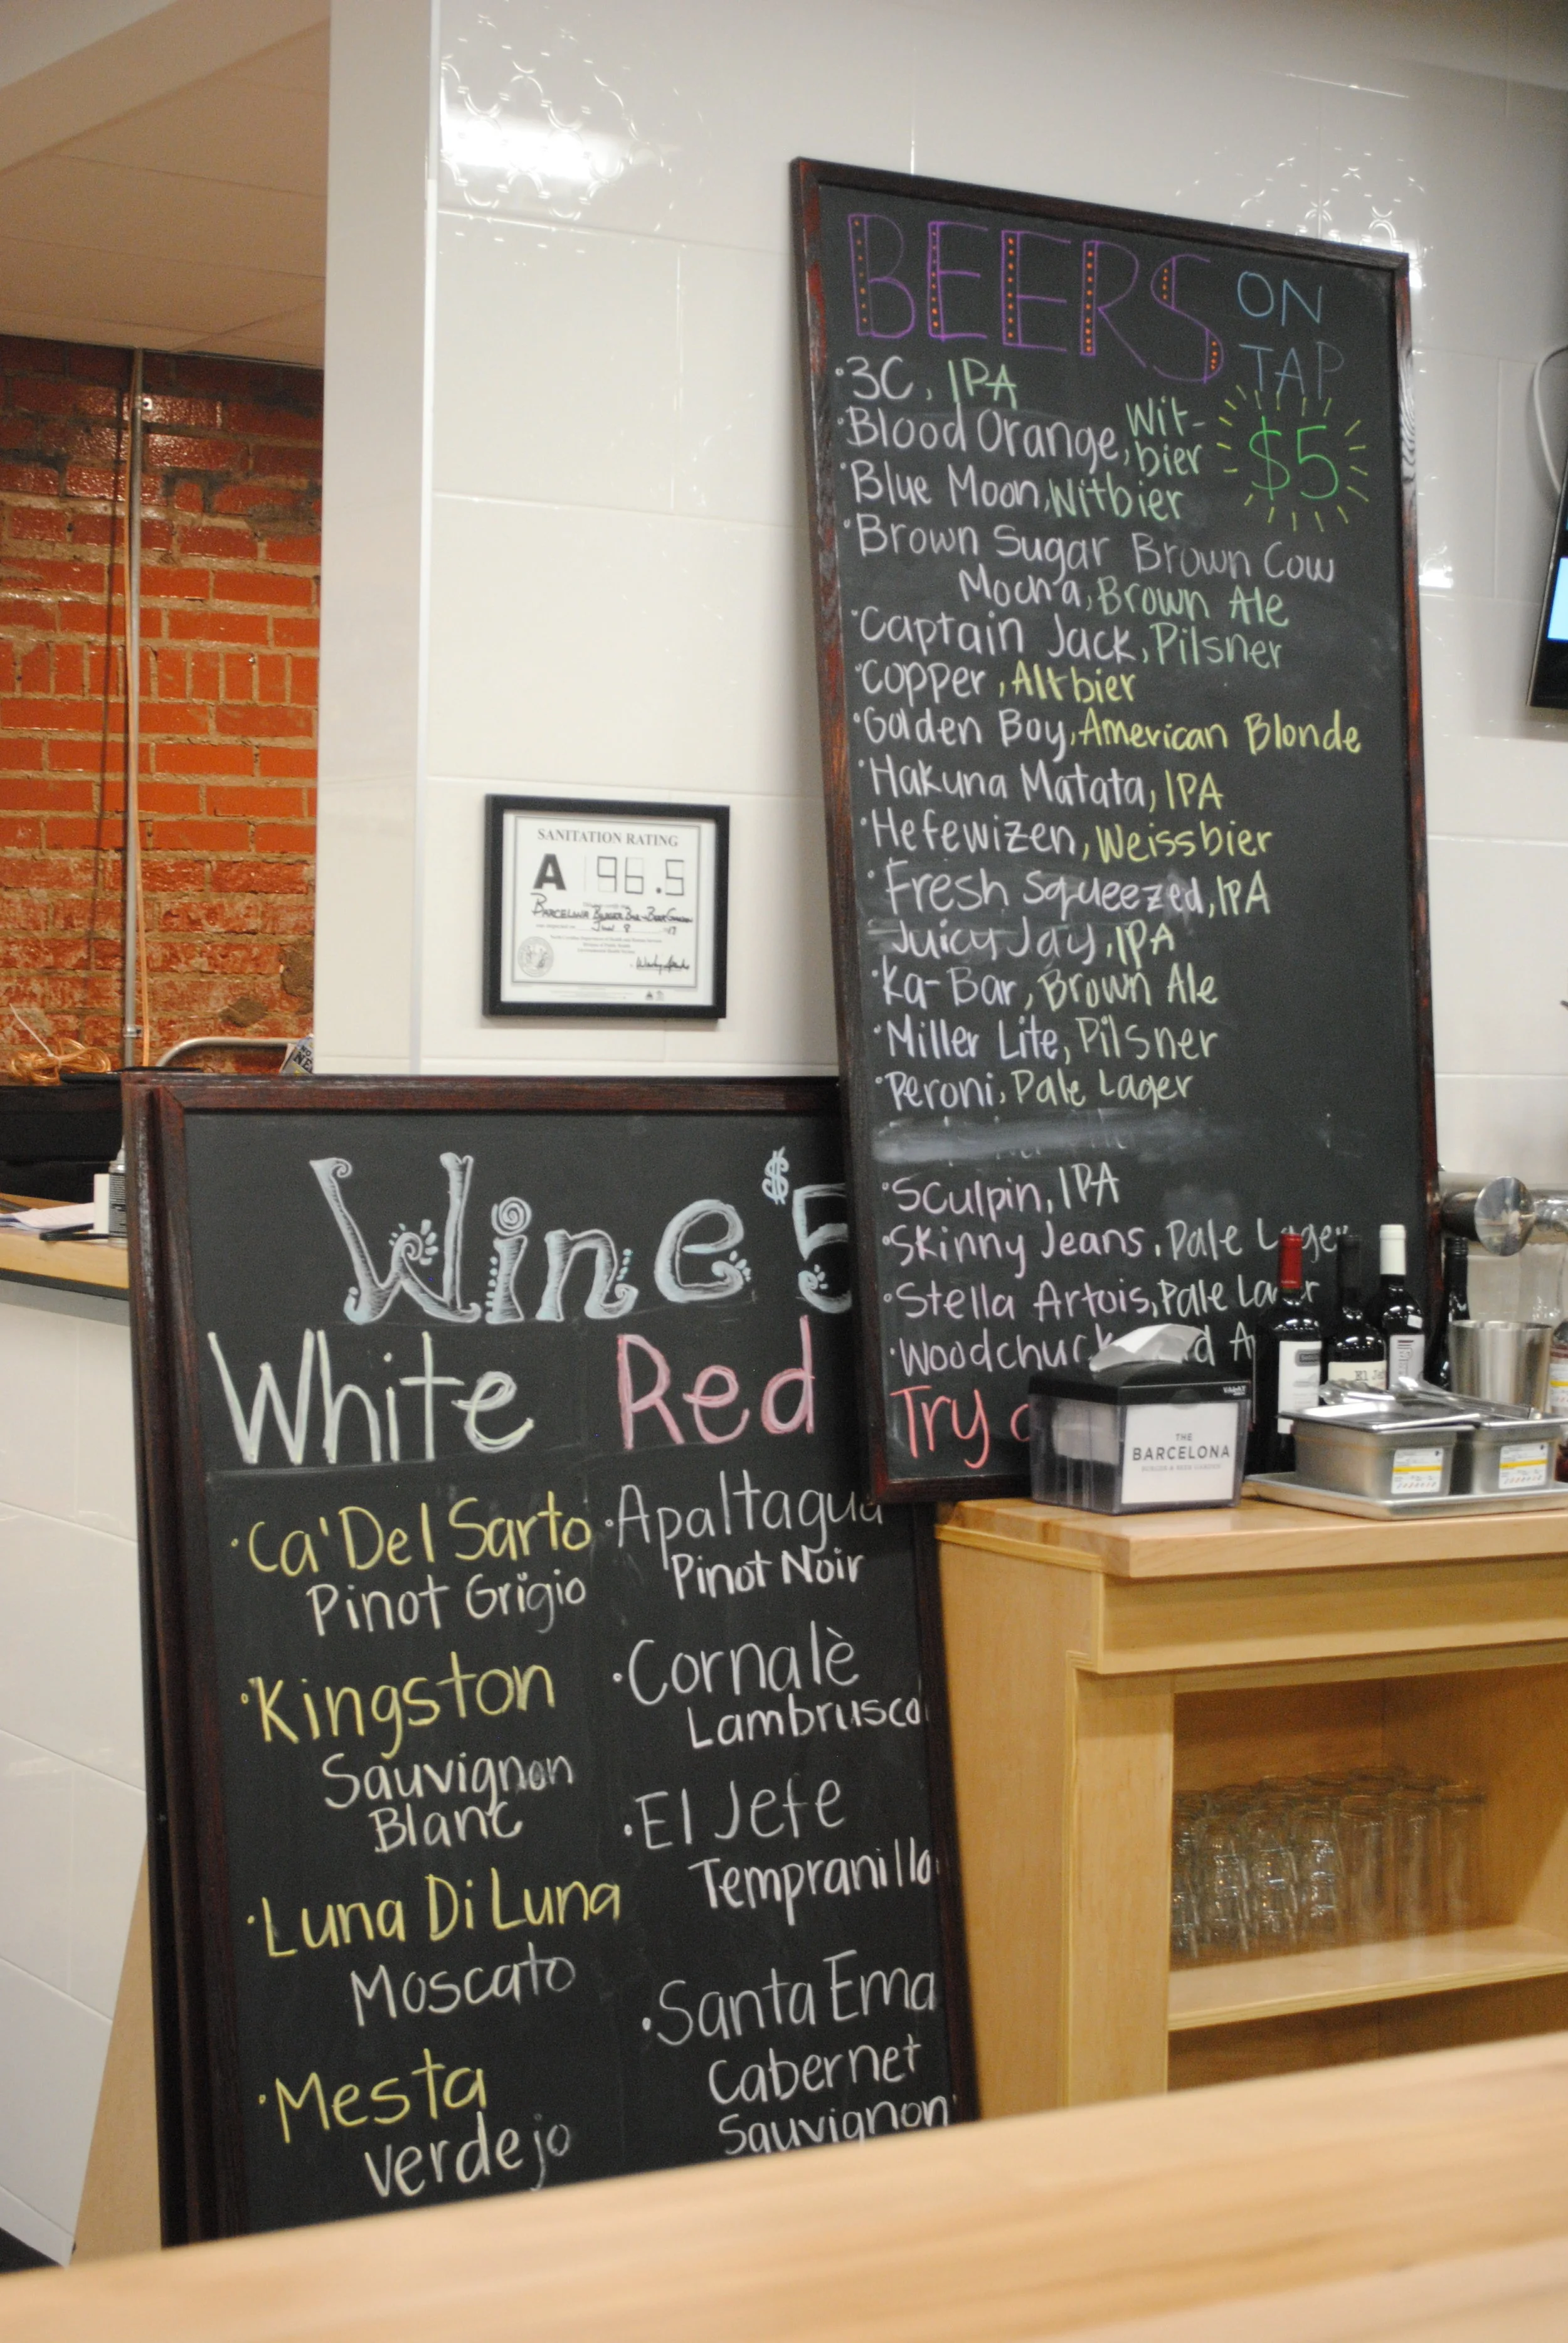 BEERS ON TAP
$5
·3C, IPA
·Blood Orange, Wit-
bier
·Blue Moon, Witbier
·Brown Sugar Brown Cow
Mocha, Brown Ale
·Captain Jack, Pilsner
·Copper, Altbier
·Golden Boy, American Blonde
·Hakuna Matata, IPA
·Hefewizen, Weissbier
·Fresh Squeezed, IPA
Juicy Jay, IPA
·Ka-Bar, Brown Ale
·Miller Lite, Pilsner
·Peroni, Pale Lager
·Sculpin, IPA
·Skinny Jeans, Pale Lager
·Stella Artois, Pale Lager
·Woodchuck
Try
SANITATION RATING
A 96.5
BARCELONA BURGER BAR + BEER GARDEN
THE
BARCELONA
BURGER & BEER GARDEN
El Jefe
Wine $5
White
·Ca'Del Sarto
Pinot Grigio
·Kingston
Sauvignon
Blanc
·Luna Di Luna
Moscato
·Mesta
Verdejo
Red
·Apaltagua
Pinot Noir
·Cornalè
Lambrusco
·El Jefe
Tempranillo
·Santa Ema
Cabernet
Sauvignon